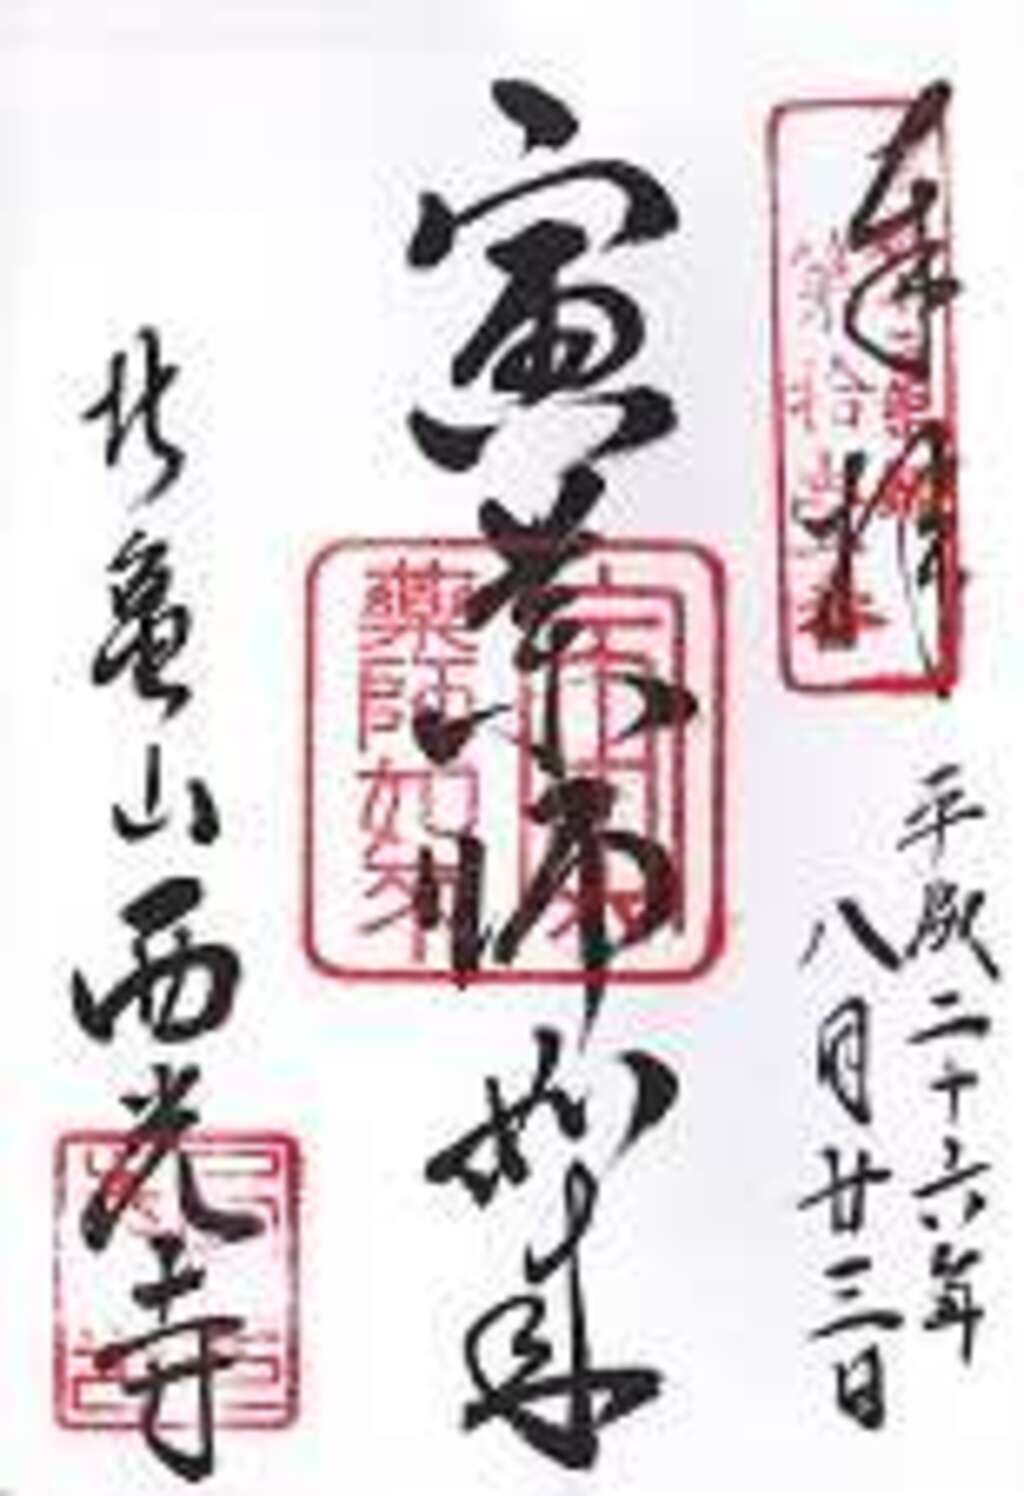 奉拝
平成二十六年
八月廿三日
寅薬師如来
薬師如来
北亀山西光寺